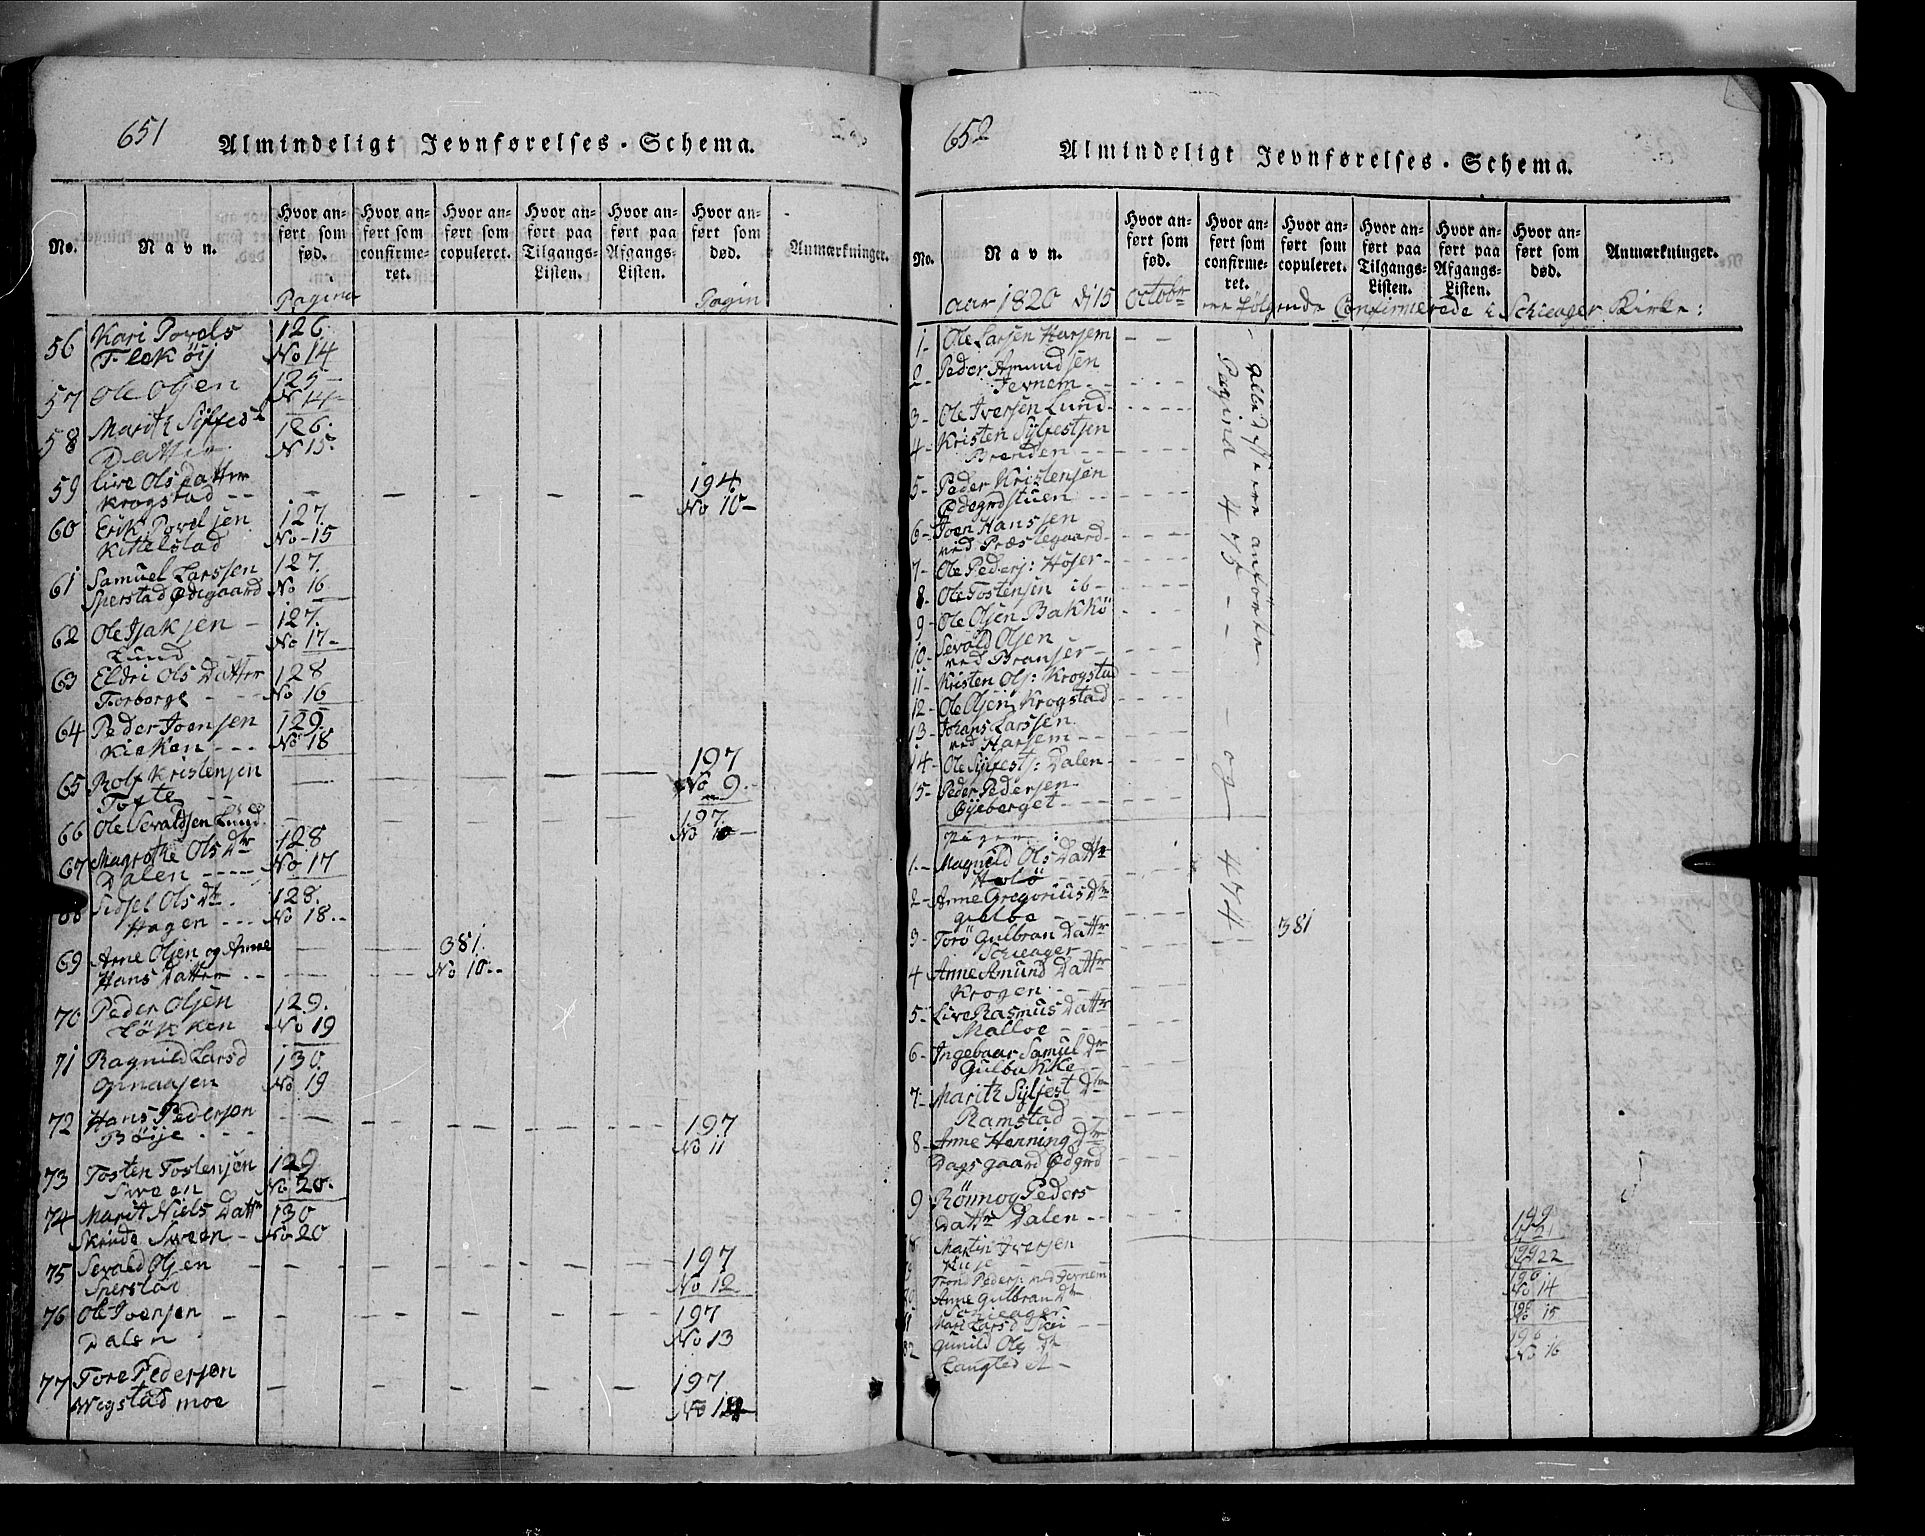 651
Almindeligt Jevnførelses-Schema.
No.
Navn.
Hvor anført som fød.
Hvor anført som confirmeret.
Hvor anført som copuleret.
Hvor anført paa Tilgangs-Listen.
Hvor anført paa Afgangs-Listen.
Hvor anført som død.
Anmærkninger.
Pagina
Pagin
56 Kari Povels 126
Flekøij No 14
57 Ole Olsen 125
N 4
58 Marith Sylfest 126.
Datter N 15
59 Live Ols Datter 194
Krogstad No 10
60 Erik Povelsen 127
Kittelstad No 15
61 Samuel Larssen 127.
Sperstad Ødegaard No 16
62 Ole Isaksen 127.
Lund No 17
63 Eldri Ols Datter 128
Forborge No 16
64 Peder Joensen 129
Kieken No 18
65 Rolf Kristensen 197
Tofte No 9
66 Ole Sevaldsen Lund 197
No 10
67 Magrethe Ols Dtr 128
Dalen No 17
68 Sidsel Ols Dtr 128.
Hagen No 18
69 Arne Olsen og Anne 381.
Hans Datter No 10
70 Peder Olsen 129.
Løkken No 19
71 Ragnild Larsd 130.
Opnaasen No 19
72 Hans Pedersen 197
Bøije No 11
73 Tosten Tostensen 129
Sween No 20.
74 Marit Niels Dattr 130
Skrude Sween No 20
75 Sevald Olsen 197
Sperstad No 12
76 Ole Iversen 197
Dalen No 13
77 Tore Pedersen 197
Wigstad moe No 14
652
Almindeligt Jevnførelses-Schema.
No.
Navn.
Hvor anført som fød.
Hvor anført som confirmeret.
Hvor anført som copuleret.
Hvor anført paa Tilgangs-Listen.
Hvor anført paa Afgangs-Listen.
Hvor anført som død.
Anmærkninger.
aar 1820 d 15 Octobr ere følgende Confirmerede i Schieager Kirke:
1 Ole Larsen Harsem
2 Peder Amundsen
Jevnem
3 Ole Iversen Lund
4 Kristen Sylfestsen
Brenden
5 Peder Kristensen
Ødegrdstuen
6 Joen Hanssen
ved Præstegaard
7 Ole Peders: Høser
8 Ole Tostensen ib
9 Ole Olsen Bakkø
10 Sevald Olsen
ved Pranser
11 Kristen Ols: Krogstad
12 Ole Olsen Krogstad
13 Johans Larssen
ved Harsem
14 Ole Sylfests: Dalen
15 Peder Pedersen
Byeberget
ere anførte
Pagina 473 og 474
Pigerne:
1 Magnild Ols Dattr
Holø
2 Anne Gregorius Dtr
Gieloe
3 Torø Gulbran Dattr 381
Schieager
4 Anne Amund Dattr
Krogen
5 Live Rasmus Dattr
Malloe
6 Ingebaar Samul Dtr
Gulbakke
7 Marith Sylfest Dtr
Ramstad
8 Anne Henning Dtr
Dagsgaard Ødgrd
9 Rønnog Peders
Dattr Dalen
Martin Iversen
Trond Peders: ved Jevnem 22
Anne Gulbran Dtr 196
Schieager No 14
Mari Larsd No 15
Gunild Ols Dtr 196
No 16